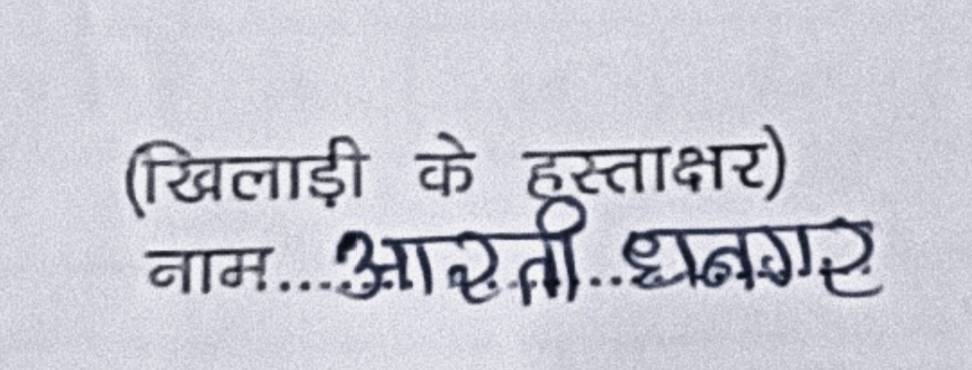 (खिलाड़ी के हस्ताक्षर)
नाम...आरती..धनगर